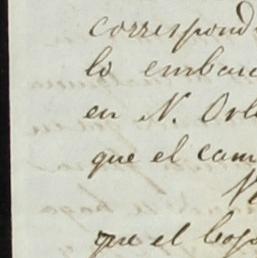 correspond
lo embar
en N. Orl
que el cam
que el